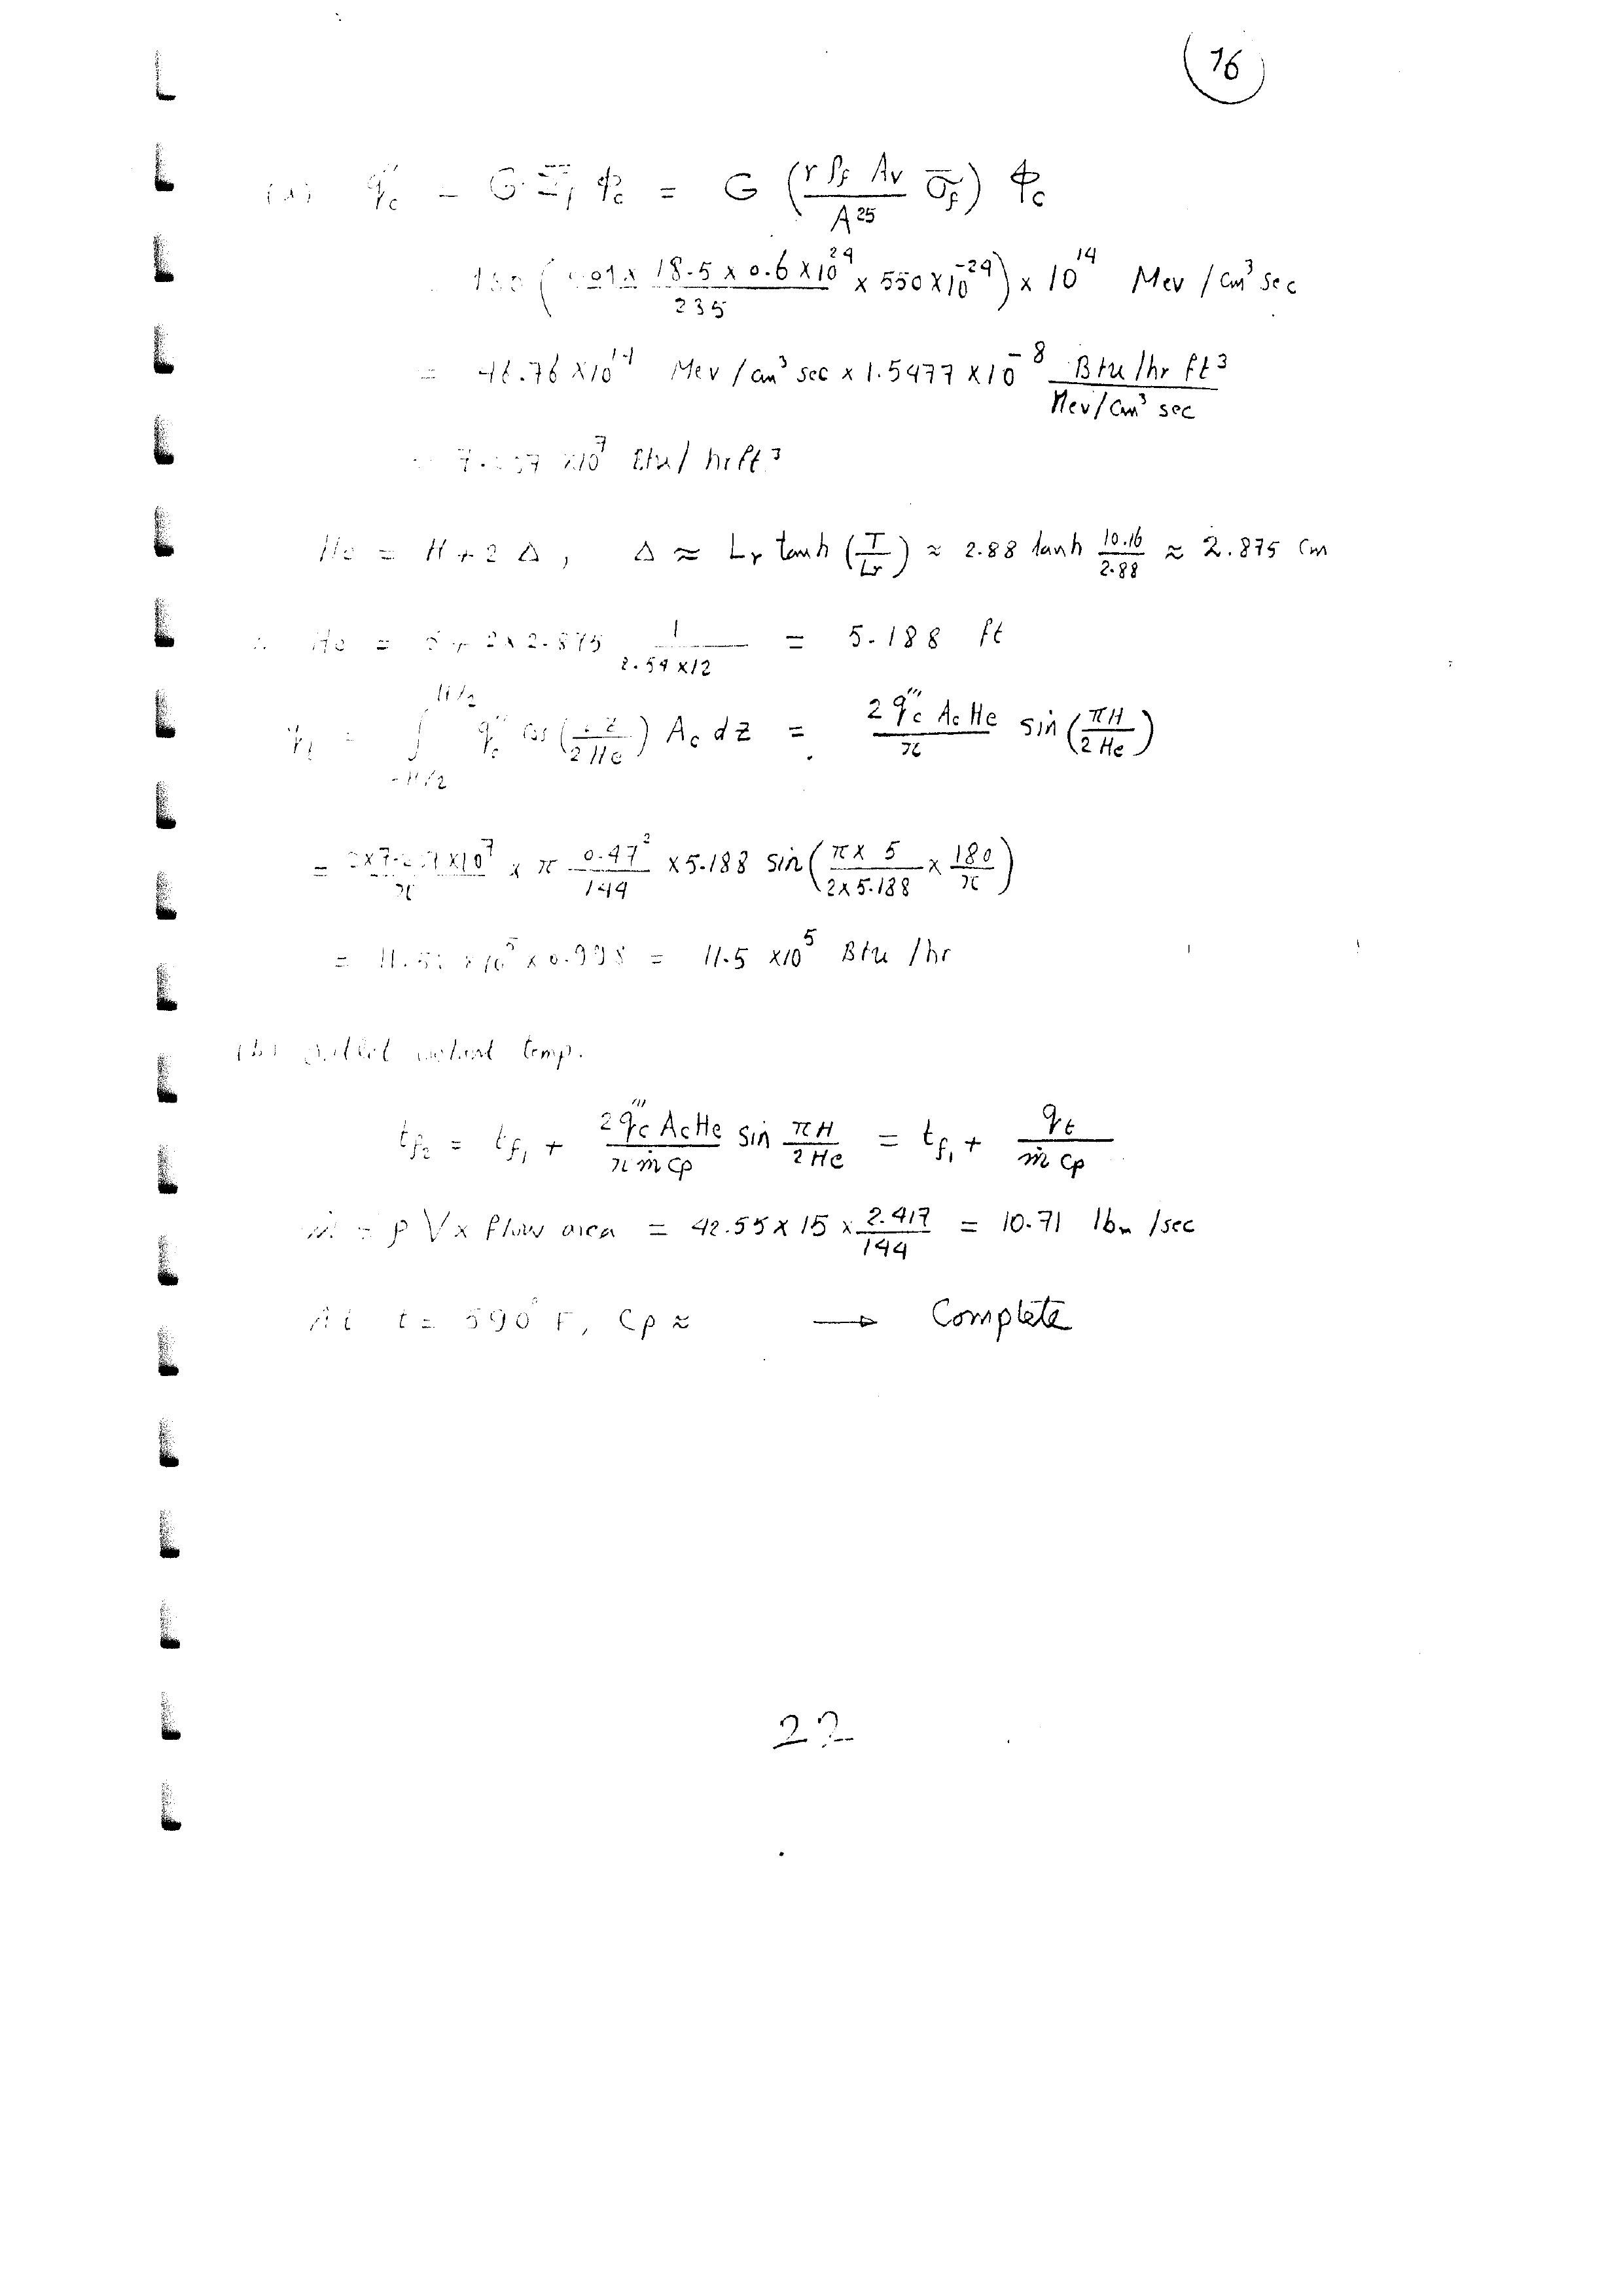 16
(a) q'''c = G Σ̄f Φc = G (r ρf Av / A²⁵ σ̄f) Φc
= 180 (0.01 x 18.5 x 0.6 x 10²⁴ / 235 x 550 x 10⁻²⁴) x 10¹⁴ Mev / cm³ sec
= 46.76 x 10¹⁴ Mev / cm³ sec x 1.5477 x 10⁻⁸ Btu/hr ft³ / Mev/cm³ sec
x10⁷ Btu / hr ft³
He = H + 2 Δ , Δ ≈ Lr tanh (T / Lr) ≈ 2.88 tanh 10.16 / 2.88 ≈ 2.875 cm
∴ He = 5 + 2 x 2.875 1 / 2.54 x 12 = 5.188 ft
qt = ∫ -H/2 H/2 q'''c cos (π z / 2 He) Ac dz = 2 q'''c Ac He / π sin (πH / 2 He)
x 10⁷ / π x π 0.47² / 144 x 5.188 sin (π x 5 / 2 x 5.188 x 180 / π)
x 10⁵ x 0.998 = 11.5 x 10⁵ Btu / hr
(b) outlet coolant temp.
tf₂ = tf₁ + 2 q'''c Ac He / π ṁ cp sin πH / 2 He = tf₁ + qt / ṁ cp
ṁ = ρ V x flow area = 42.55 x 15 x 2.417 / 144 = 10.71 lbm / sec
At t = 590° F, Cp ≈ → Complete
22